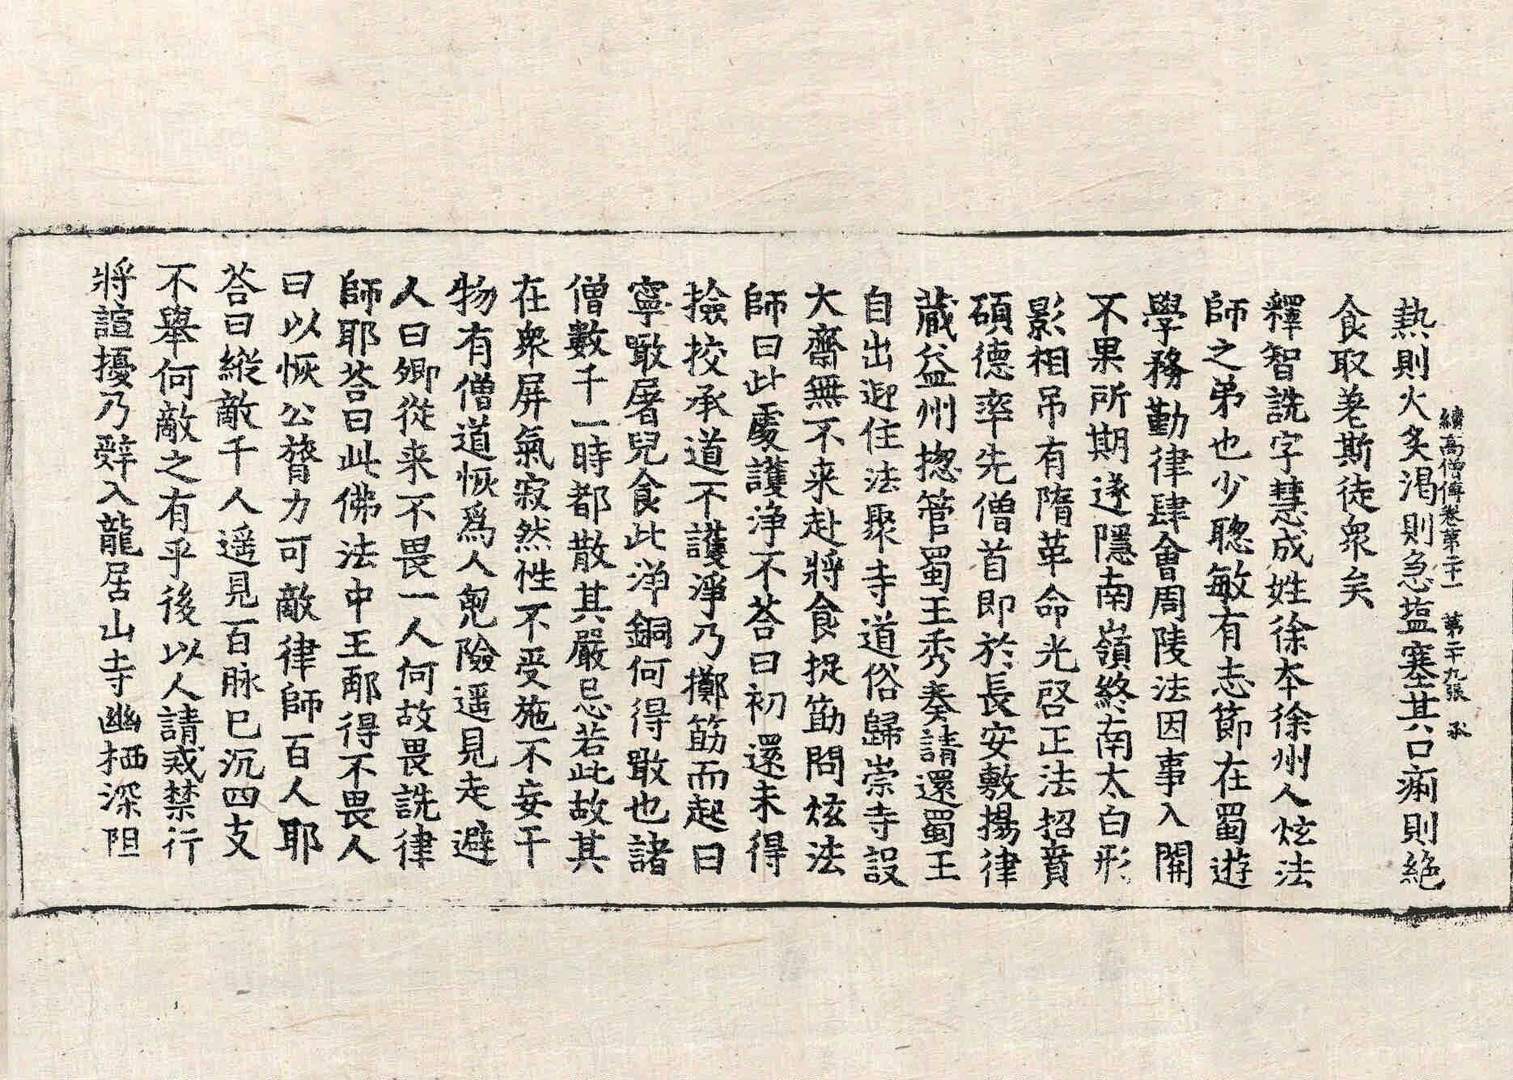 續高僧傳卷第二十一 第二十九張 承
熱則火炙渴則急𥂁塞其口痢則絕
食取差斯徒衆矣
釋智詵字慧成姓徐本徐州人炫法
師之弟也少聰敏有志節在蜀遊
學務勤律肆會周陵法因事入關
不果所期遂隱南嶺終南太白形
影相吊有隋革命光啓正法招賁
碩德率先僧首即於長安敷揚律
藏益州揔管蜀王秀奏請還蜀王
自出迎住法聚寺道俗歸崇寺設
大齋無不来赴將食捉筯問炫法
師曰此處護净不荅曰初還未得
撿挍承道不護淨乃擲筯而起曰
寧噉屠兒食此洋銅何得噉也諸
僧數千一時都散其嚴忌若此故其
在衆屏氣寂然性不受施不妄干
物有僧道恢爲人兇險遥見走避
人曰卿從来不畏一人何故畏詵律
師耶荅曰此佛法中王耶得不畏人
曰以恢公膂力可敵律師百人耶
荅曰縱敵千人遥見百脉已沉四支
不舉何敵之有乎後以人請戒禁行
將諠擾乃辝入龍居山寺幽栖深阻